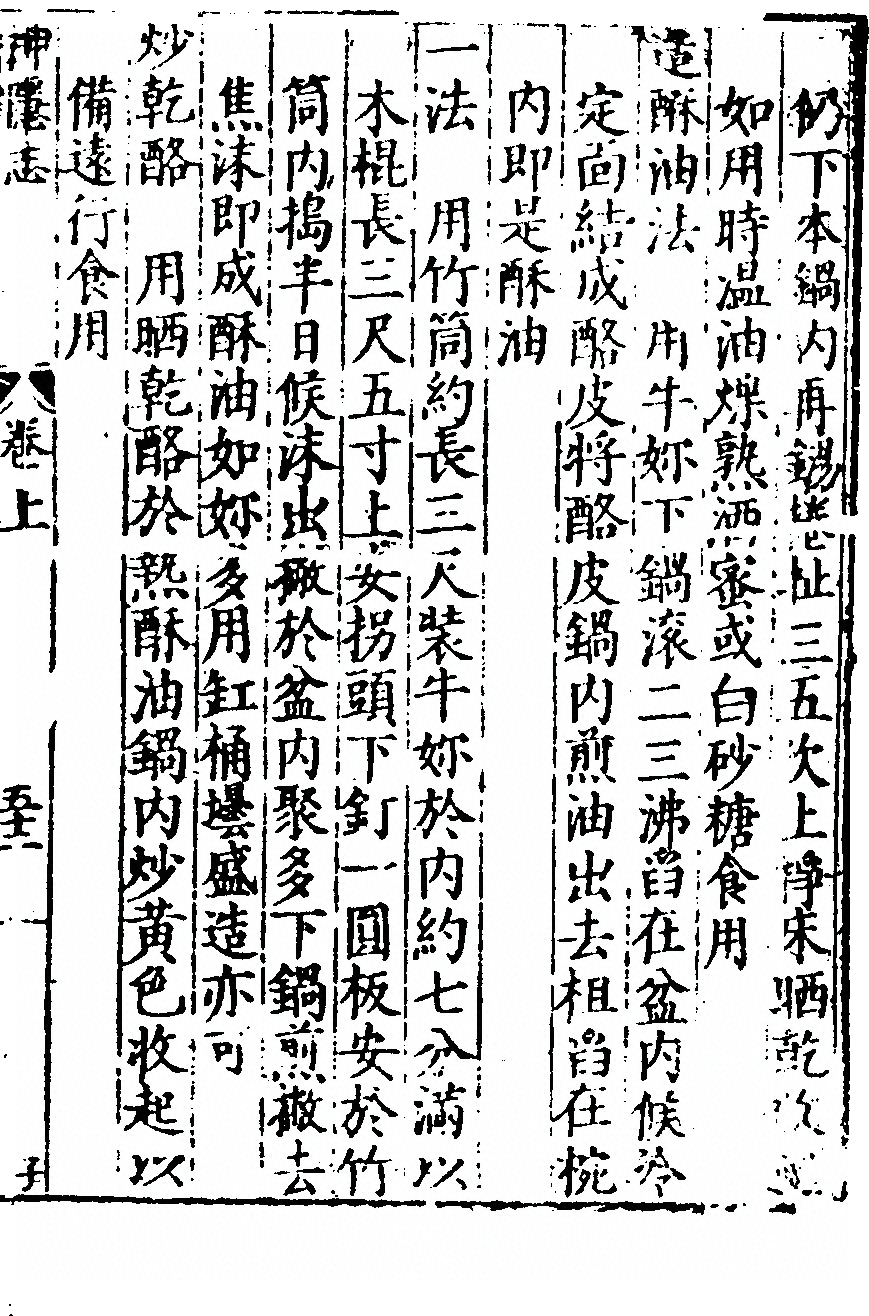 仍下本鍋内再鍚 扯三五次上 床晒乾
如用時温油煠熟洒蜜或白砂糖食用
造酥油法　用牛妳下鍋滚二三沸舀在盆内候冷
定面結成酪皮将酪皮鍋内煎油出去柤舀在椀
内即是酥油
一法　用竹筒約長三尺装牛妳於内約七分滿以
木棍長三尺五寸上安拐頭下釘一圓板安於竹
筒内搗半日候沫出撇於盆内聚多下鍋煎撇去
焦沫即成酥油如妳多用缸桶壜盛造亦可
炒乾酪　用晒乾酪於熟酥油鍋内炒黄色收起以
備遠行食用
神隱志　卷上　五十二　子